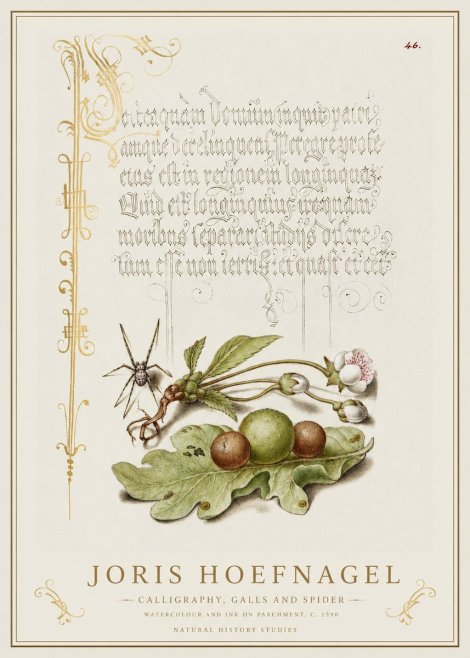 46.
Dominumque patri-
amque derelinquens, Peregre profe-
ctus est in regionem longinquam.
Quid est longinquius
moribus separari, studijs discre-
tum esse non terris, et quasi et cet.
JORIS HOEFNAGEL
CALLIGRAPHY, GALLS AND SPIDER
WATERCOLOUR AND INK ON PARCHMENT, C. 1590
NATURAL HISTORY STUDIES